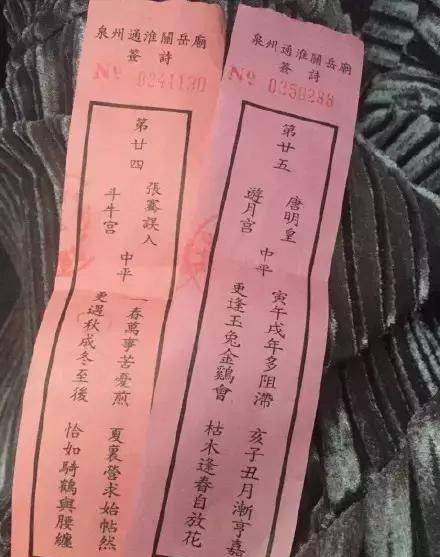 泉州通淮關岳廟
簽詩
№ 0241130
第廿四
張騫誤入
斗牛宮
中平
一春萬事苦憂煎
夏裏營求始帖然
更遇秋成冬至後
恰如騎鶴與腰纏
泉州通淮關岳廟
簽詩
№ 0350288
第廿五
唐明皇
遊月宮
中平
寅午戌年多阻滯
亥子丑月漸亨嘉
更逢玉兔金鷄會
枯木逢春自放花